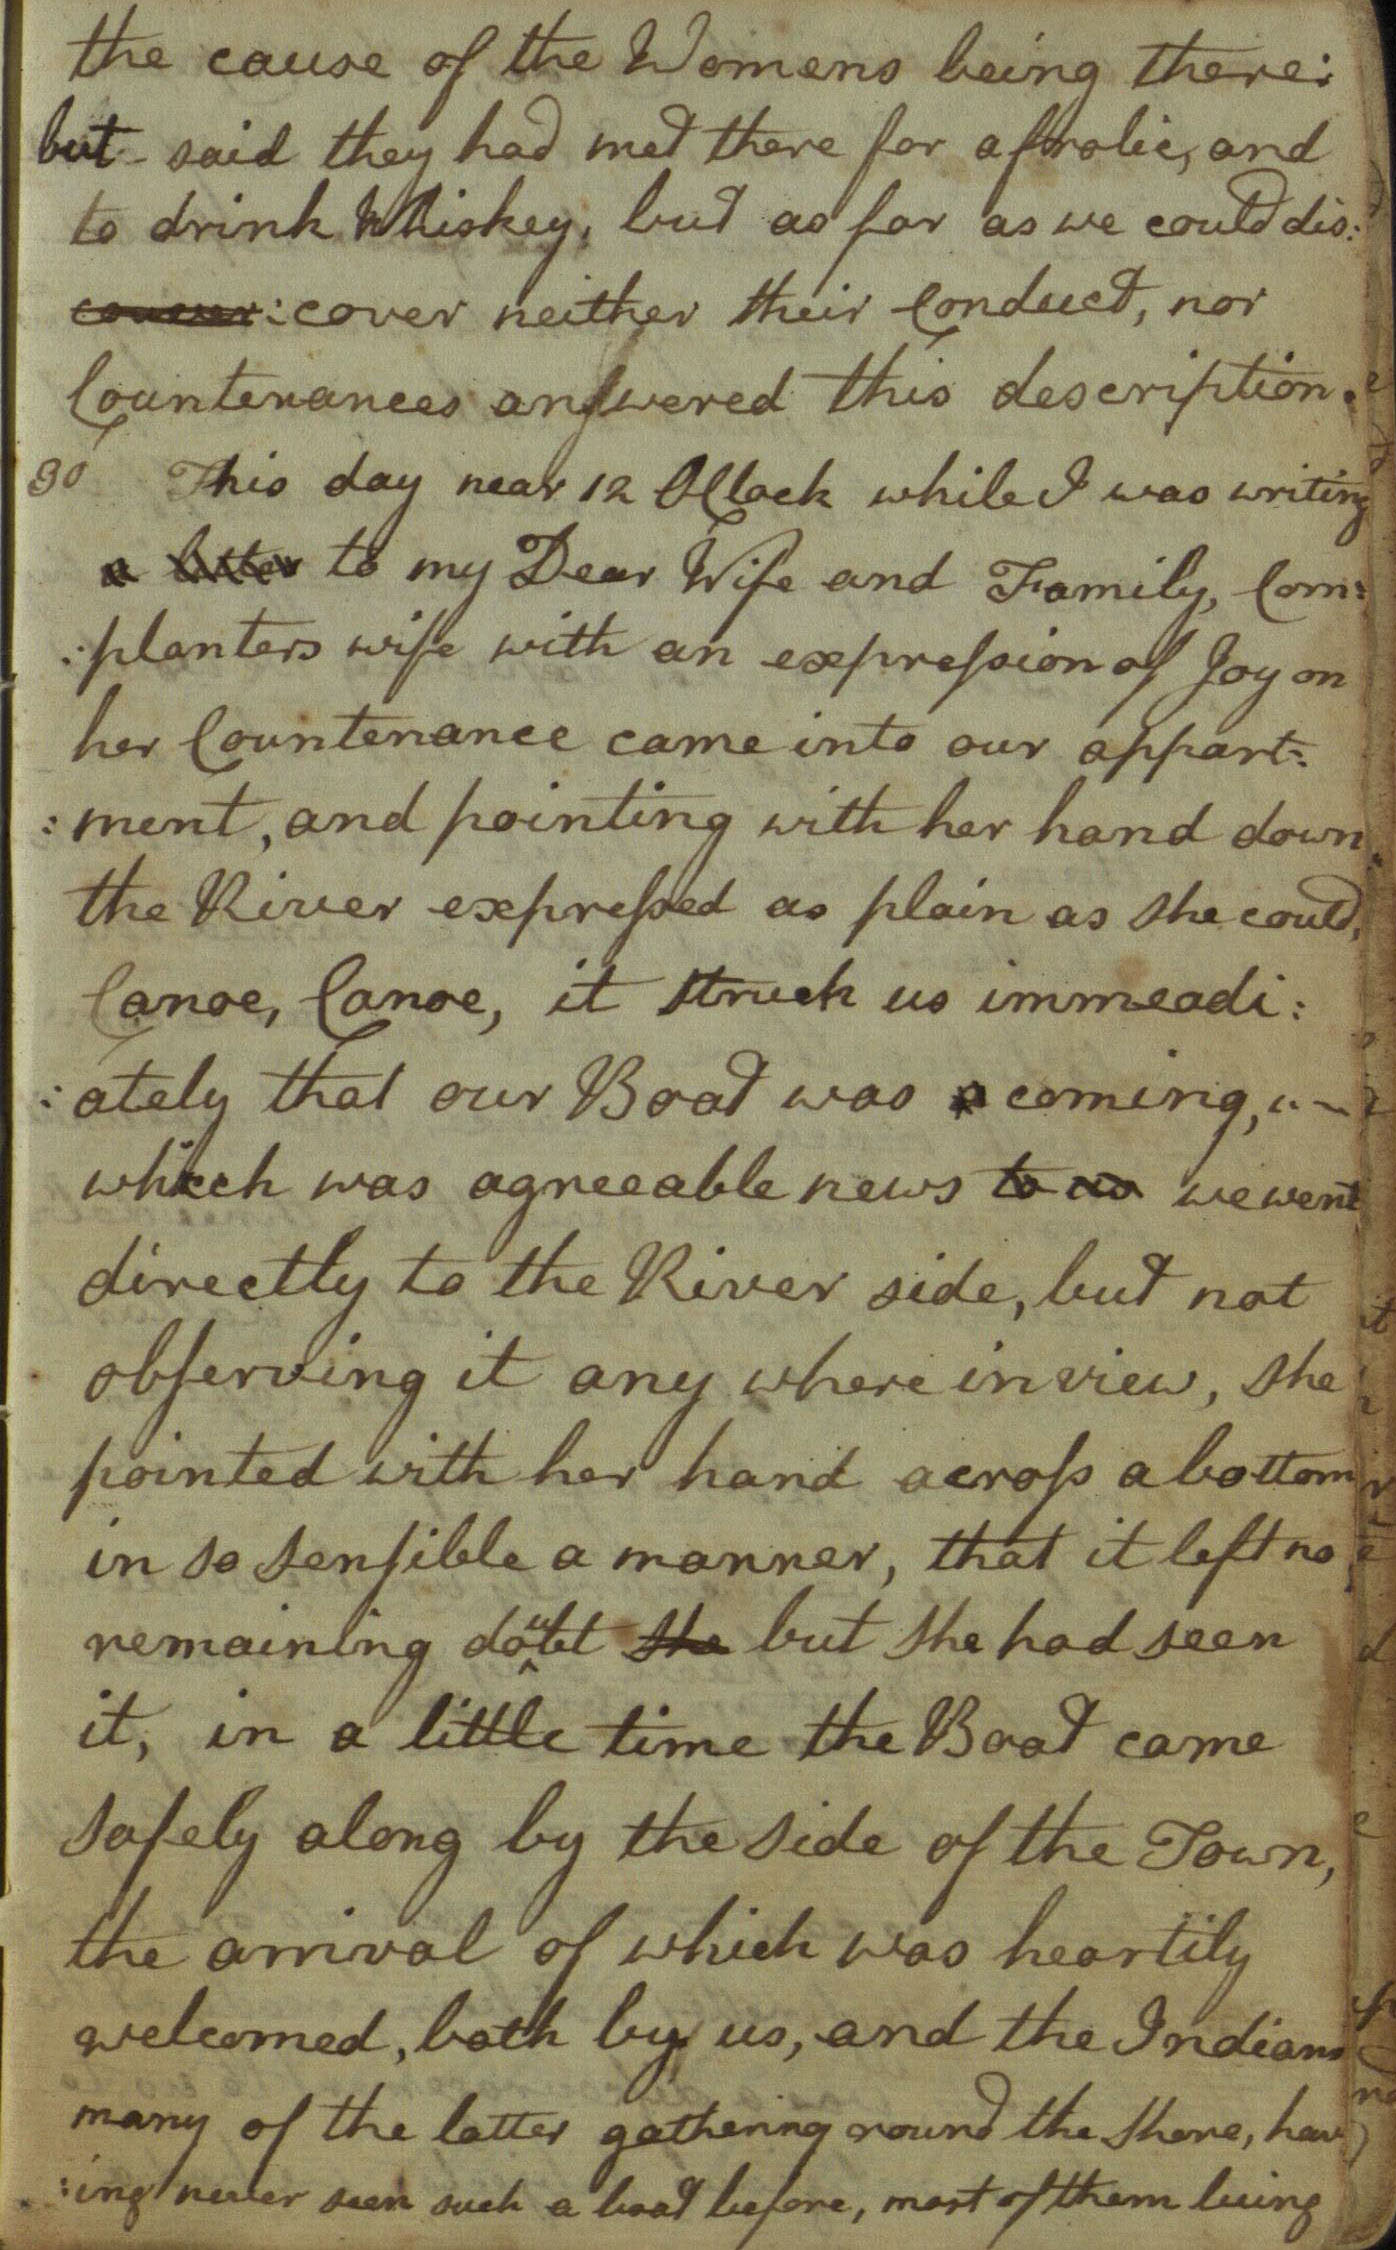 the cause of the Womens being there:
but said they had met there for a frolic, and
to drink Whiskey, but as far as we could dis:
:cover neither their Conduct, nor
Countenances answered this description.
30 This day near 12 OClock while I was writing
a letter to my Dear Wife and Family, Corn:
:planters wife with an expression of Joy on
her Countenance came into our appart:
:ment, and pointing with her hand down
the River expressed as plain as she could,
Canoe, Canoe, it struck us immeadi:
:ately that our Boat was a coming,
which was agreeable news to us we went
directly to the River side, but not
observing it any where in view, she
pointed with her hand across a bottom
in so sensible a manner, that it left no
remaining doubt she but she had seen
it, in a little time the Boat came
safely along by the side of the Town,
the arrival of which was heartily
welcomed, both by us, and the Indians
many of the latter gathering round the shore, hav
:ing never seen such a boat before, most of them being